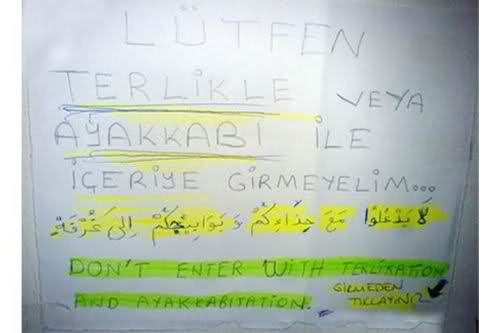 LÜTFEN
TERLİKLE VEYA
AYAKKABI İLE
İÇERİYE GİRMEYELİM...
لَا يَدْخُلُوا مَعَ حِذَاءِكُمْ وَ بَوَابِيجِكُمْ اِلىَ غُرْفَةٍ
DON'T ENTER WITH TERLIKATION
AND AYAKKABITATION.
GİRMEDEN
TIKLAYINIZ